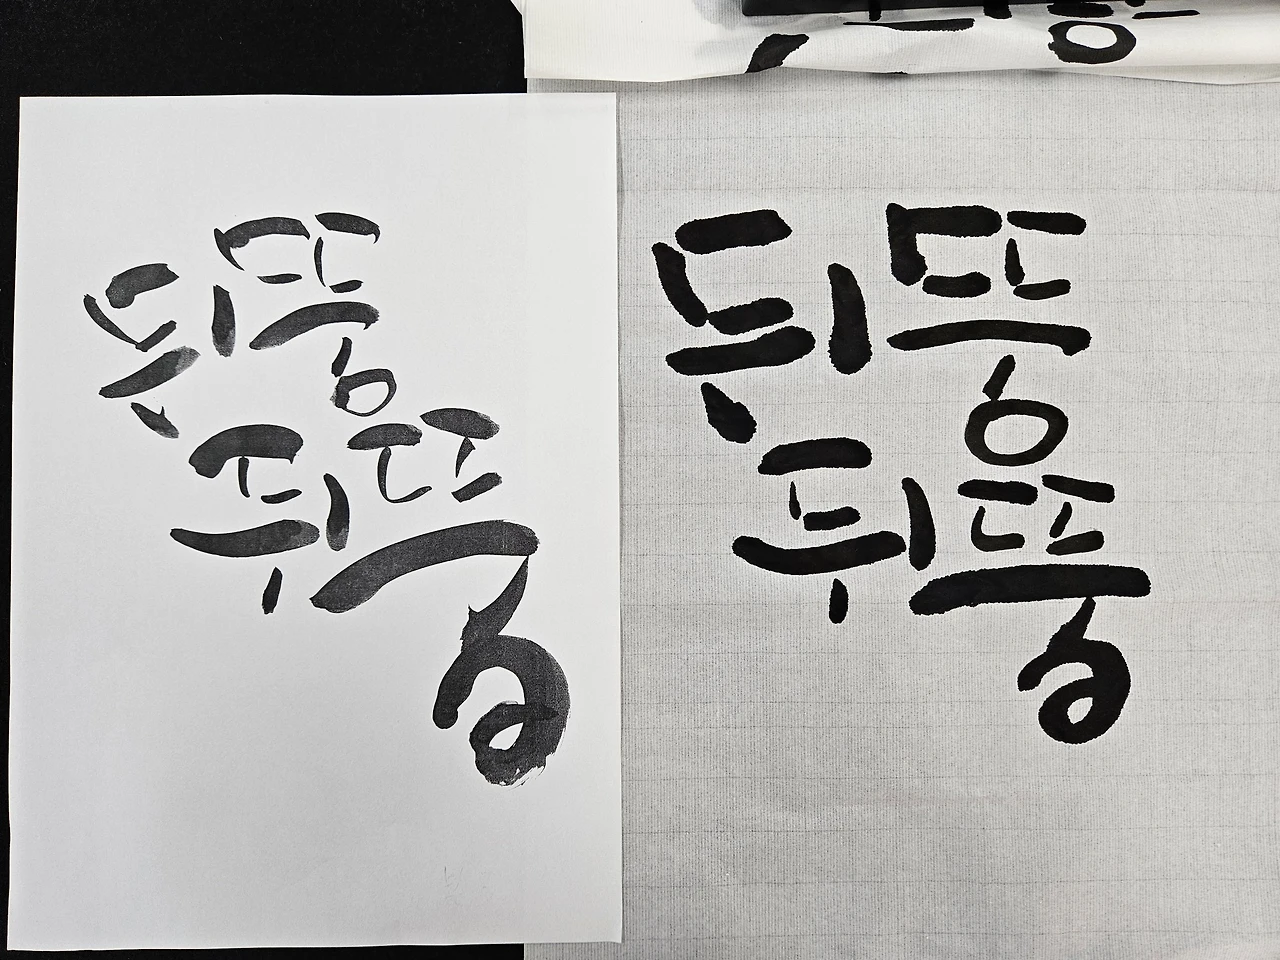 뒤뚱
뒤뚱
뒤뚱
뒤뚱